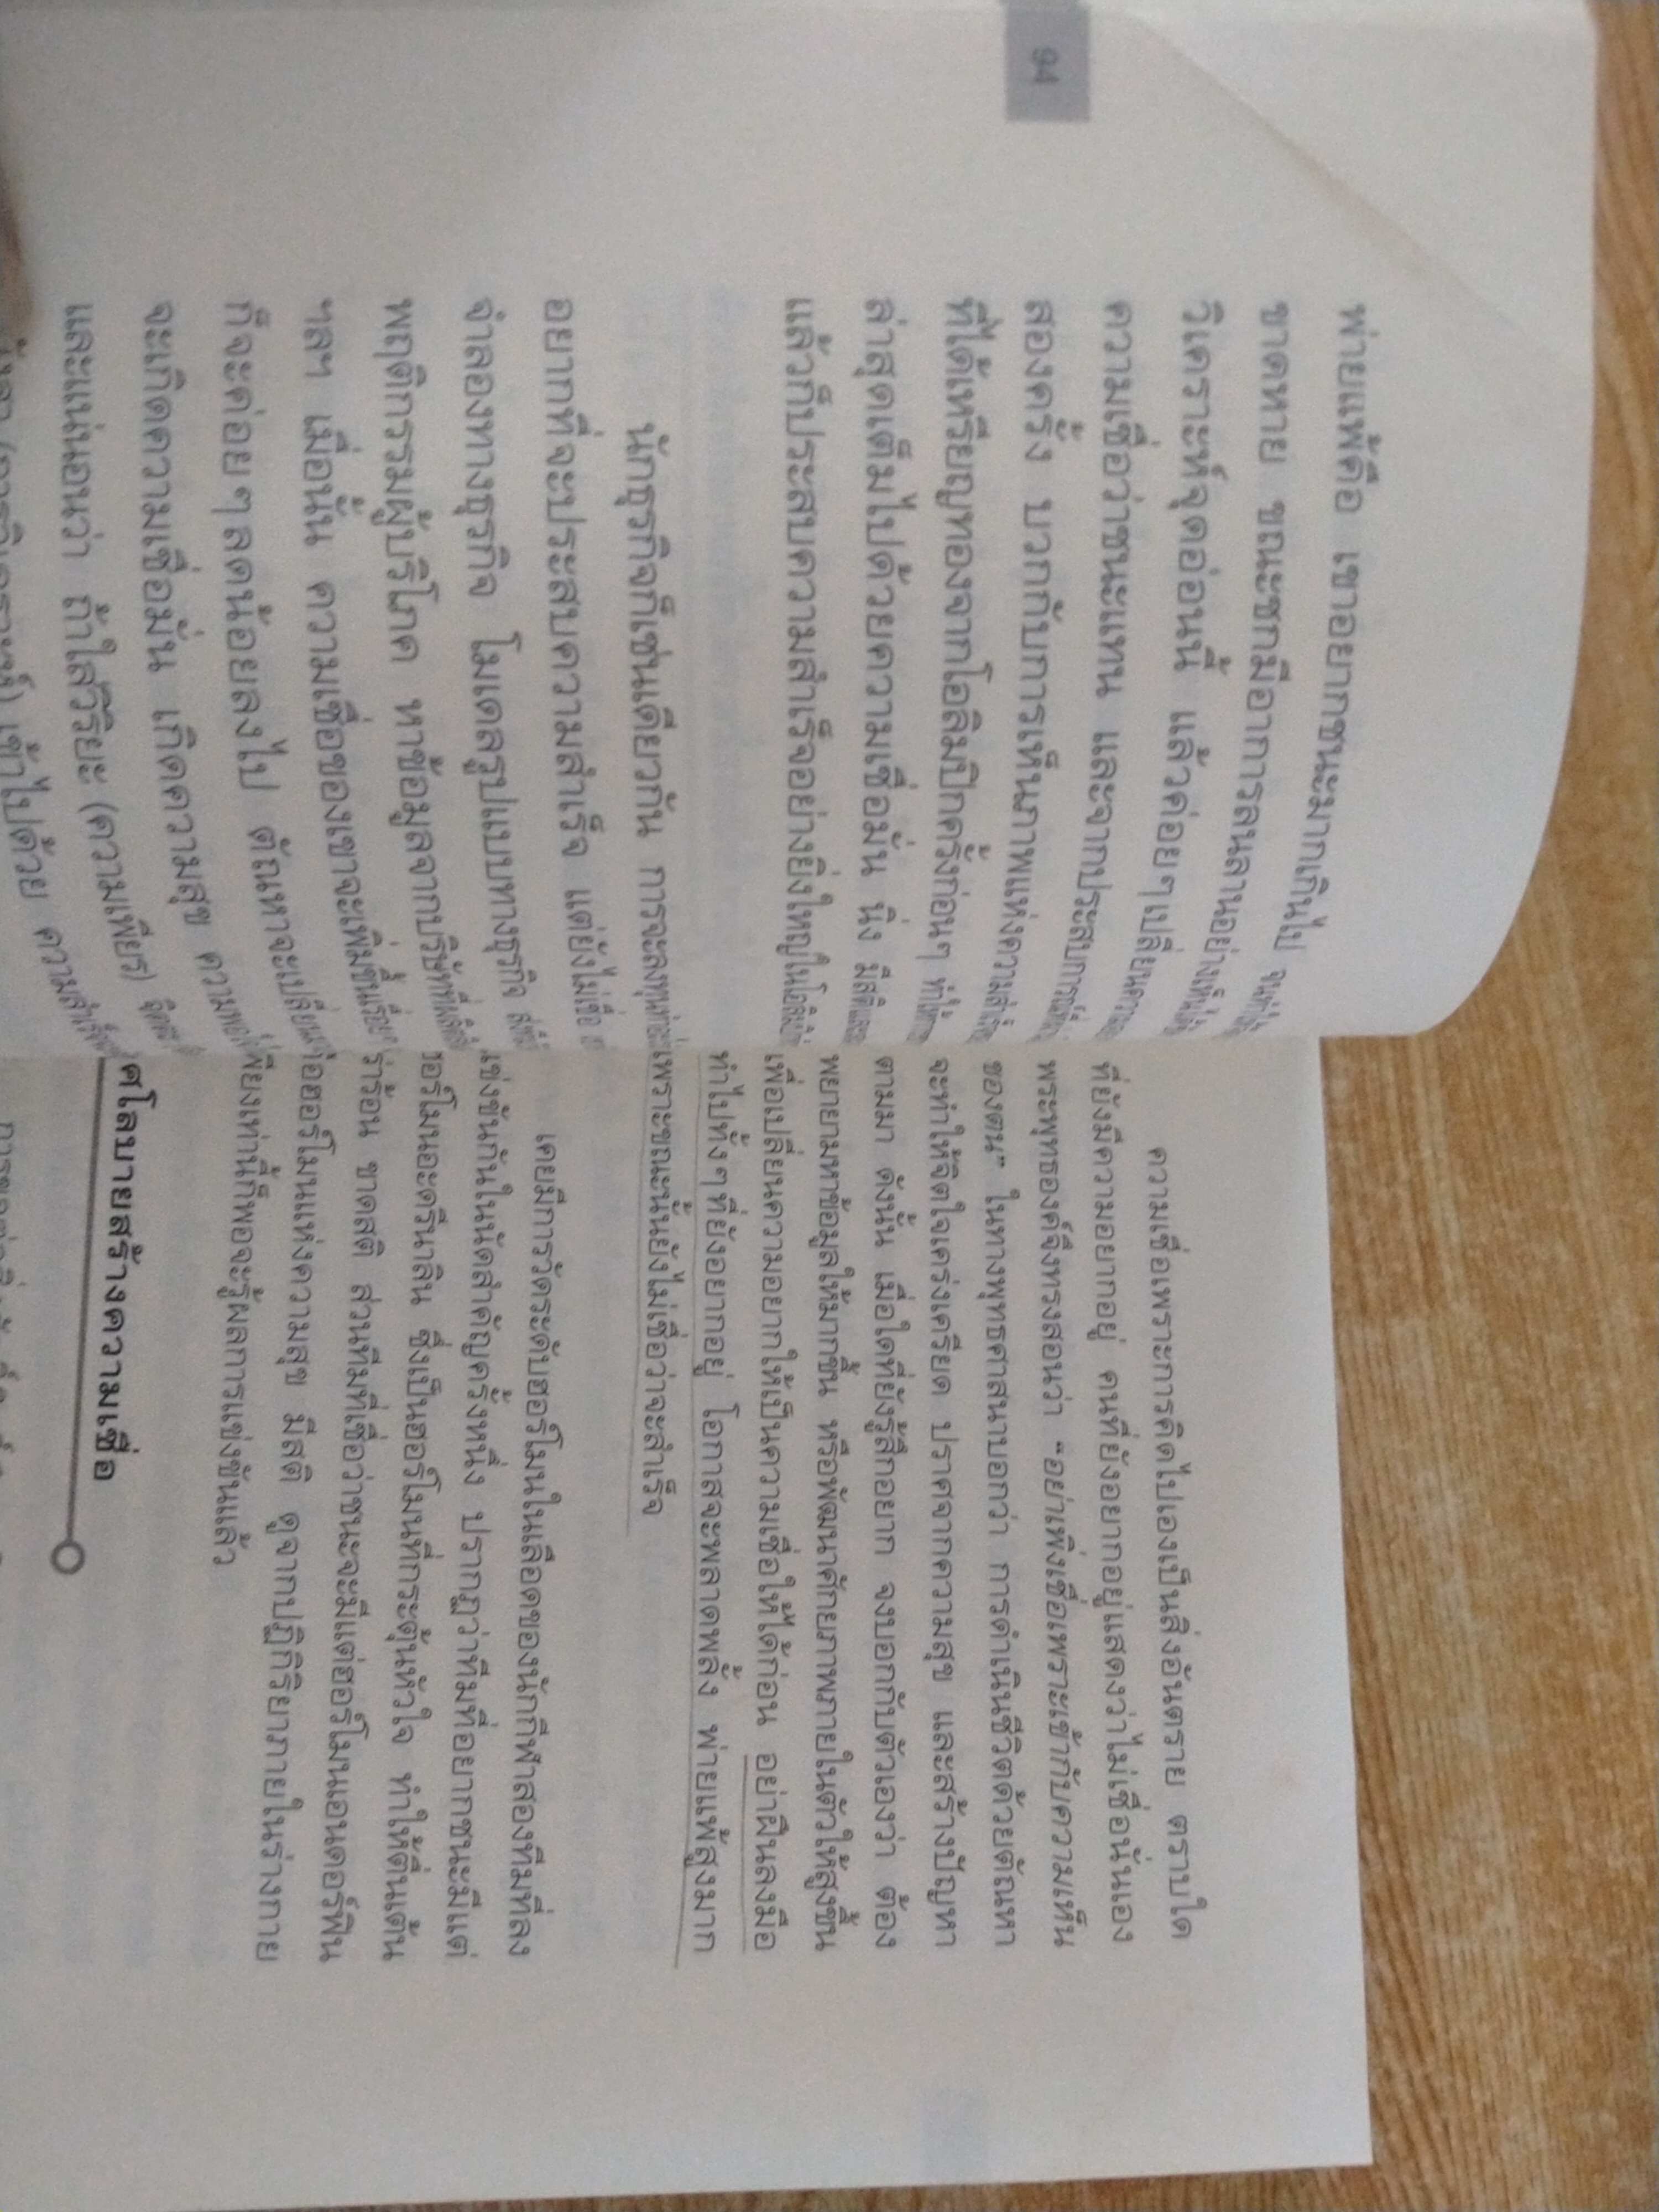 94
พ่ายแพ้คือ เขาอยากชนะมากเกินไป
ขาดหาย ขณะชกมีอาการลนลานอย่างเห็นได้ชัด
วิเคราะห์จุดอ่อนนี้ แล้วค่อยๆเปลี่ยนความ
ความเชื่อว่าชนะแทน และจากประสบการณ์
สองครั้ง บวกกับการเห็นภาพแห่งความสำเร็จ
ที่ได้เหรียญทองจากโอลิมปิกครั้งก่อนๆ ทำให้
ล่าสุดเต็มไปด้วยความเชื่อมั่น นิ่ง มีสติและ
แล้วก็ประสบความสำเร็จอย่างยิ่งใหญ่ในโอลิมปิก
นักธุรกิจก็เช่นเดียวกัน การจะลงทุน
อยากที่จะประสบความสำเร็จ แต่ยังไม่เชื่อ
จำลองทางธุรกิจ โมเดลรูปแบบทางธุรกิจ
พฤติกรรมผู้บริโภค หาข้อมูลจากบริษัทที่
ฯลฯ เมื่อนั้น ความเชื่อของเขาจะเพิ่มขึ้นเรื่อยๆ
ก็จะค่อยๆลดน้อยลงไป ตัณหาจะเปลี่ยน
จะเกิดความเชื่อมั่น เกิดความสุข ความ
และแน่นอนว่า ถ้าใส่วิริยะ (ความเพียร) จิตตะ
เข้าไปด้วย ความสำเร็จ
ความเชื่อเพราะการคิดไปเองเป็นสิ่งอันตราย ตราบใด
ที่ยังมีความอยากอยู่ คนที่ยังอยากอยู่แสดงว่าไม่เชื่อนั่นเอง
พระพุทธองค์จึงทรงสอนว่า “อย่าเพิ่งเชื่อเพราะเข้ากับความเห็น
ของตน” ในทางพุทธศาสนาบอกว่า การดำเนินชีวิตด้วยตัณหา
จะทำให้จิตใจเคร่งเครียด ปราศจากความสุข และสร้างปัญหา
ตามมา ดังนั้น เมื่อใดที่ยังรู้สึกอยาก จงบอกกับตัวเองว่า ต้อง
พยายามหาข้อมูลให้มากขึ้น หรือพัฒนาศักยภาพภายในตัวให้สูงขึ้น
เพื่อเปลี่ยนความอยากให้เป็นความเชื่อให้ได้ก่อน อย่าฝืนลงมือ
ทำไปทั้งๆที่ยังอยากอยู่ โอกาสจะพลาดพลั้ง พ่ายแพ้สูงมาก
เพราะขณะนั้นยังไม่เชื่อว่าจะสำเร็จ
เคยมีการวัดระดับฮอร์โมนในเลือดของนักกีฬาสองทีมที่ลง
แข่งขันกันในนัดสำคัญครั้งหนึ่ง ปรากฏว่าทีมที่อยากชนะมีแต่
ฮอร์โมนอะดรีนาลิน ซึ่งเป็นฮอร์โมนที่กระตุ้นหัวใจ ทำให้ตื่นเต้น
เร่าร้อน ขาดสติ ส่วนทีมที่เชื่อว่าชนะจะมีแต่ฮอร์โมนเอนดอร์ฟิน
คือฮอร์โมนแห่งความสุข มีสติ ดูจากปฏิกิริยาภายในร่างกาย
เพียงเท่านี้ก็พอจะรู้ผลการแข่งขันแล้ว
ศโลบายสร้างความเชื่อ